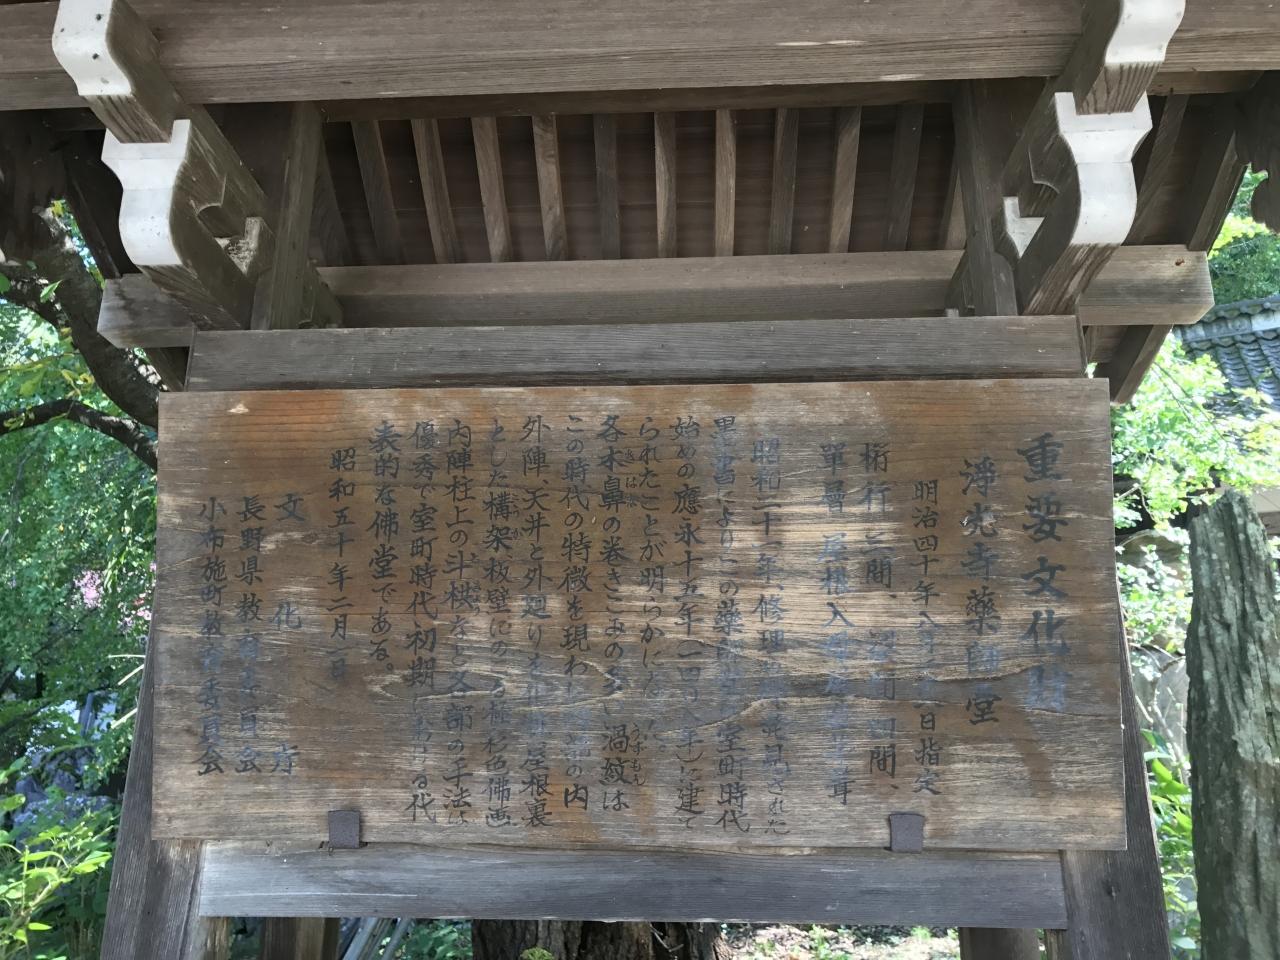 重要文化財
淨光寺藥師堂
明治四十年八月 日指定
桁行三間、 四間、
單層 屋根入母屋 葺
昭和二十一年、修理 発見された
墨書によりこの藥師堂 室町時代
始めの應永十五年(一四〇八年)に建て
られたことが明らかに
各木鼻の巻きこみの多い渦紋は
きばな
うずもん
この時代の特徴を現わし の内
外陣、天井と外廻り 屋根裏
とした構架板壁に 極彩色佛画
内陣柱上の斗栱など各部の手法は
優秀で室町時代初期における代
表的な佛堂である。
昭和五十年二月一日
文化庁
長野県教育委員会
小布施町教育委員会